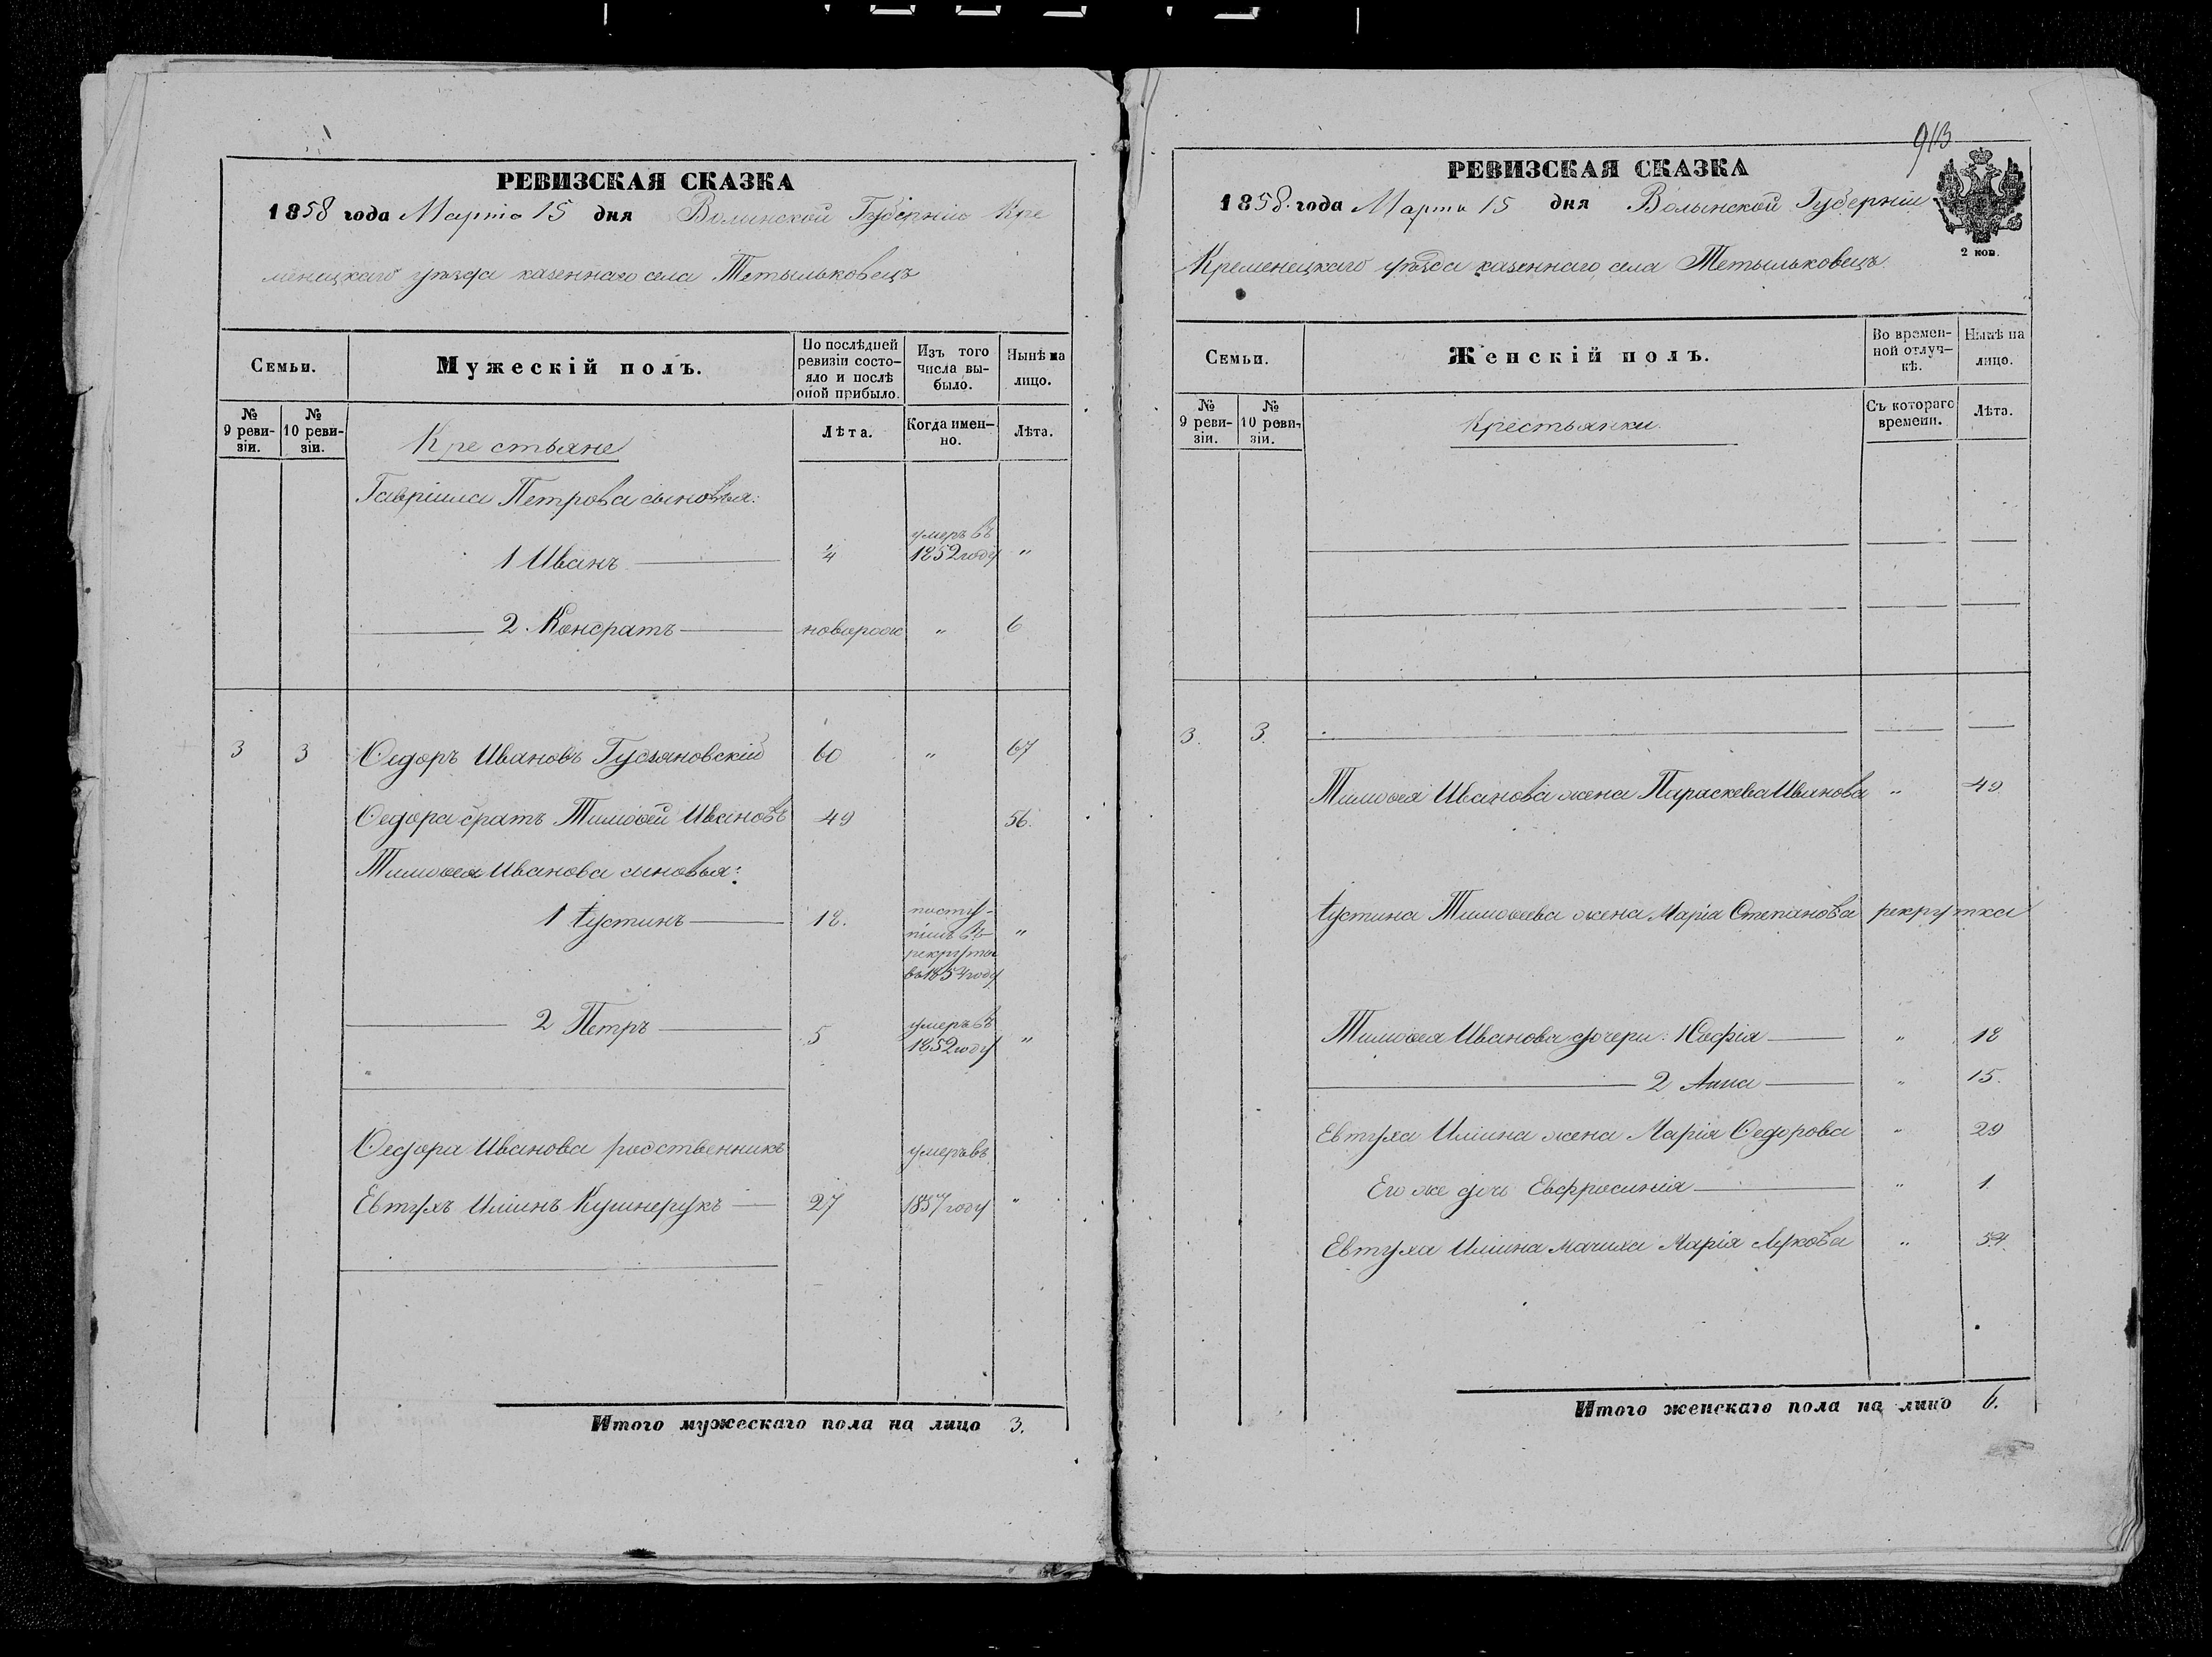 РЕВИЗСКАЯ СКАЗКА
1858 года Марта 15 дня Волынской Губерніи Кре
менецкаго уѣзда казеннаго села Тетыльковецъ
Семьи.
Мужескій полъ.
По послѣдней ревизіи состояло и послѣ оной прибыло.
Изъ того числа выбыло.
Нынѣ на лицо.
№ 9 ревизіи.
№ 10 ревизіи.
Лѣта.
Когда именно.
Лѣта.
Крестьяне
Гавріила Петрова сыновья:
1 Иванъ ¼ умеръ въ 1852 году "
2. Кондратъ новорож " 6
3 3 Ѳедоръ Ивановъ 60 " 67
Ѳедора братъ Тимоѳей Ивановъ 49 56.
Тимоѳея Иванова сыновья:
1 Іустинъ 18. поступилъ въ рекруты въ 1854 году "
2 Петръ 5 умеръ въ 1852 году "
Ѳедора Иванова родственникъ умеръ въ
Евтухъ Ильинъ Кушнерукъ 27 1857 году "
Итого мужескаго пола на лицо 3.
913
РЕВИЗСКАЯ СКАЗКА
1858. года Марта 15 дня Волынской Губерніи
2 коп.
Кременецкаго уѣзда казеннаго села Тетыльковецъ.
Семьи.
Женскій полъ.
Во временной отлучкѣ.
Нынѣ на лицо.
№ 9 ревизіи.
№ 10 ревизіи.
Съ котораго времени.
Лѣта.
Крестьянки.
3. 3.
Тимоѳея Иванова жена Параскева Иванова " 49
Іустина Тимоѳеева жена Марія Степанова рекрутка
Тимоѳея Иванова дочери: 1 Софія " 18
2 Анна " 15.
Евтуха Ильина жена Марія Ѳедорова " 29
Его же дочь Евфросинія " 1
Евтуха Ильина мачиха Марія Лукова " 54.
Итого женскаго пола на лицо 6.